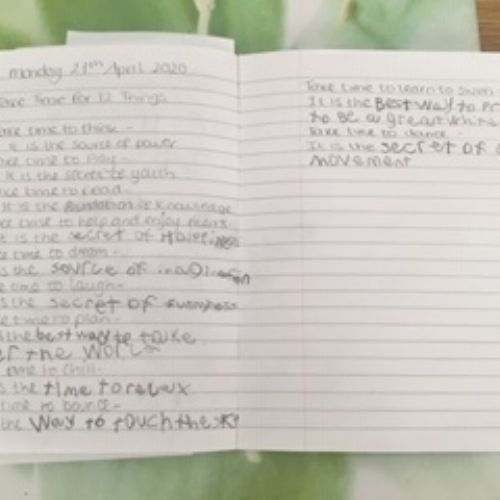 Monday 21th April 2020
Take Time for 12 Things
take time to think -
it is the source of power
take time to play -
It is the secret to youth
take time to read -
It is the foundation of knowledge
take time to help and enjoy
it is the secret of
time to dream -
is the source of
time to laugh -
is the secret of
time to plan -
is the best way to take
er the world
time to chill -
is the time to relax
time to bounce -
the way to touch the sky
Take time to learn to swim -
It is the Best way to Pr
to be a great white
Take time to dance -
It is the secret of
movement